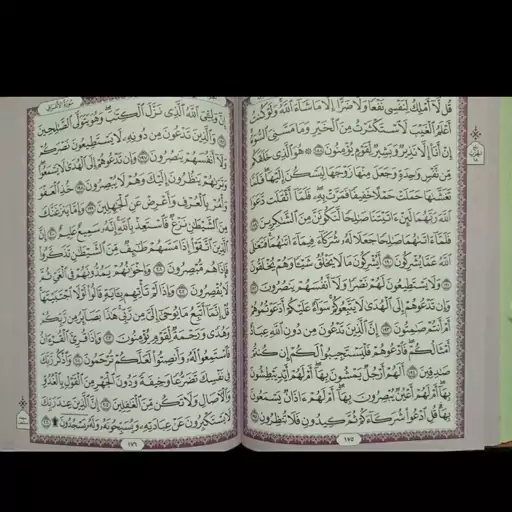 قُل لَّا أَمْلِكُ لِنَفْسِي نَفْعًا وَلَا ضَرًّا إِلَّا مَا شَاءَ اللَّهُ وَلَوْ كُنتُ
أَعْلَمُ الْغَيْبَ لَاسْتَكْثَرْتُ مِنَ الْخَيْرِ وَمَا مَسَّنِيَ السُّوءُ
إِنْ أَنَا إِلَّا نَذِيرٌ وَبَشِيرٌ لِّقَوْمٍ يُؤْمِنُونَ ١٨٨ هُوَ الَّذِي خَلَقَكُم
مِّن نَّفْسٍ وَاحِدَةٍ وَجَعَلَ مِنْهَا زَوْجَهَا لِيَسْكُنَ إِلَيْهَا فَلَمَّا
تَغَشَّاهَا حَمَلَتْ حَمْلًا خَفِيفًا فَمَرَّتْ بِهِ فَلَمَّا أَثْقَلَت دَّعَوَا
اللَّهَ رَبَّهُمَا لَئِنْ آتَيْتَنَا صَالِحًا لَّنَكُونَنَّ مِنَ الشَّاكِرِينَ ١٨٩
فَلَمَّا آتَاهُمَا صَالِحًا جَعَلَا لَهُ شُرَكَاءَ فِيمَا آتَاهُمَا فَتَعَالَى
اللَّهُ عَمَّا يُشْرِكُونَ ١٩٠ أَيُشْرِكُونَ مَا لَا يَخْلُقُ شَيْئًا وَهُمْ يُخْلَقُونَ
١٩١ وَلَا يَسْتَطِيعُونَ لَهُمْ نَصْرًا وَلَا أَنفُسَهُمْ يَنصُرُونَ ١٩٢
وَإِن تَدْعُوهُمْ إِلَى الْهُدَىٰ لَا يَتَّبِعُوكُمْ سَوَاءٌ عَلَيْكُمْ أَدَعَوْتُمُوهُمْ
أَمْ أَنتُمْ صَامِتُونَ ١٩٣ إِنَّ الَّذِينَ تَدْعُونَ مِن دُونِ اللَّهِ عِبَادٌ
أَمْثَالُكُمْ فَادْعُوهُمْ فَلْيَسْتَجِيبُوا لَكُمْ إِن كُنتُمْ
صَادِقِينَ ١٩٤ أَلَهُمْ أَرْجُلٌ يَمْشُونَ بِهَا أَمْ لَهُمْ أَيْدٍ يَبْطِشُونَ
بِهَا أَمْ لَهُمْ أَعْيُنٌ يُبْصِرُونَ بِهَا أَمْ لَهُمْ آذَانٌ يَسْمَعُونَ
بِهَا قُلِ ادْعُوا شُرَكَاءَكُمْ ثُمَّ كِيدُونِ فَلَا تُنظِرُونِ ١٩٥
١٧٥
سورة الأعراف
إِنَّ وَلِيِّيَ اللَّهُ الَّذِي نَزَّلَ الْكِتَابَ وَهُوَ يَتَوَلَّى الصَّالِحِينَ
١٩٦ وَالَّذِينَ تَدْعُونَ مِن دُونِهِ لَا يَسْتَطِيعُونَ نَصْرَكُمْ
وَلَا أَنفُسَهُمْ يَنصُرُونَ ١٩٧ وَإِن تَدْعُوهُمْ إِلَى الْهُدَىٰ لَا يَسْمَعُوا
وَتَرَاهُمْ يَنظُرُونَ إِلَيْكَ وَهُمْ لَا يُبْصِرُونَ ١٩٨ خُذِ الْعَفْوَ
وَأْمُرْ بِالْعُرْفِ وَأَعْرِضْ عَنِ الْجَاهِلِينَ ١٩٩ وَإِمَّا يَنزَغَنَّكَ
مِنَ الشَّيْطَانِ نَزْغٌ فَاسْتَعِذْ بِاللَّهِ إِنَّهُ سَمِيعٌ عَلِيمٌ ٢٠٠ إِنَّ
الَّذِينَ اتَّقَوْا إِذَا مَسَّهُمْ طَائِفٌ مِّنَ الشَّيْطَانِ تَذَكَّرُوا
فَإِذَا هُم مُّبْصِرُونَ ٢٠١ وَإِخْوَانُهُمْ يَمُدُّونَهُمْ فِي الْغَيِّ ثُمَّ
لَا يُقْصِرُونَ ٢٠٢ وَإِذَا لَمْ تَأْتِهِم بِآيَةٍ قَالُوا لَوْلَا اجْتَبَيْتَهَا
قُلْ إِنَّمَا أَتَّبِعُ مَا يُوحَىٰ إِلَيَّ مِن رَّبِّي هَٰذَا بَصَائِرُ مِن رَّبِّكُمْ
وَهُدًى وَرَحْمَةٌ لِّقَوْمٍ يُؤْمِنُونَ ٢٠٣ وَإِذَا قُرِئَ الْقُرْآنُ
فَاسْتَمِعُوا لَهُ وَأَنصِتُوا لَعَلَّكُمْ تُرْحَمُونَ ٢٠٤ وَاذْكُر رَّبَّكَ
فِي نَفْسِكَ تَضَرُّعًا وَخِيفَةً وَدُونَ الْجَهْرِ مِنَ الْقَوْلِ بِالْغُدُوِّ
وَالْآصَالِ وَلَا تَكُن مِّنَ الْغَافِلِينَ ٢٠٥ إِنَّ الَّذِينَ عِندَ رَبِّكَ
لَا يَسْتَكْبِرُونَ عَنْ عِبَادَتِهِ وَيُسَبِّحُونَهُ وَلَهُ يَسْجُدُونَ ۩ ٢٠٦
١٧٦